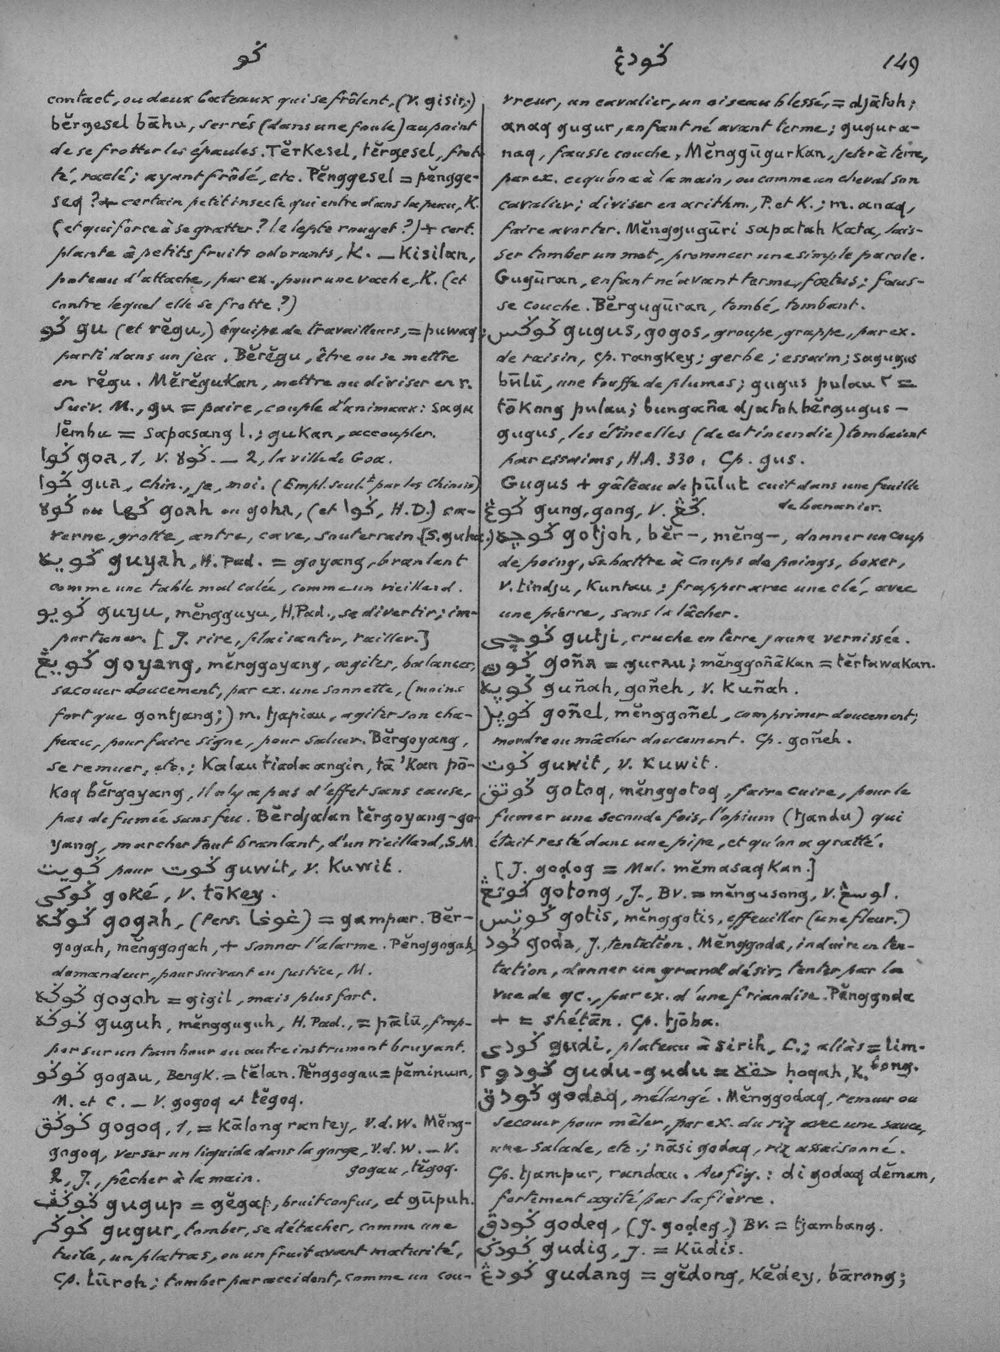 ڬو
ڬودڠ
149
contact, ou deux bateaux qui se frôlent, (V. gisir;)
bĕrgesel bāhu, serrés (dans une foule) au point
de se frotter les épaules. Tĕrkesel, tĕrgesel, frot-
té, raclé; ayant frôlé, etc. Pĕnggesel = pĕngge-
seq ? + certain petit insecte qui entre dans la peau, K.
(et qui force à se gratter? le lépte rouget?) + cert.
plante à petits fruits odorants, K. — Kisilan,
poteau d'attache, par ex. pour une vache, K. (et
contre lequel elle se frotte?)
ڬو gu (et rĕgu,) équipe de travailleurs, = puwaq;
parti dans un jeu. Bĕrĕgu, être ou se mettre
en rĕgu. Mĕrĕgukan, mettre ou diviser en r.
Suiv. M., gu = paire, couple d'animaux: sagu
lĕmbu = sapasang l.; gukan, accoupler.
ڬوا goa, 1, V. ڬوه. — 2, la ville de Goa.
ڬوا gua, chin., je, moi. (Empl. seult par les Chinois)
ڬوه ou ڬها goah ou goha, (et ڬوا, H.D.) ca-
verne, grotte, antre, cave, souterrain (S. guha.)
ڬويه guyah, H. Pad. = goyang, branlant
comme une table mal calée, comme un vieillard.
ڬويو guyu, mĕngguyu, H. Pad., se divertir; im-
portuner. [J. rire, plaisanter, railler.]
ڬويڠ goyang, mĕnggoyang, agiter, balancer,
secouer doucement, par ex. une sonnette, (moins
fort que gontjang;) m. tjapiau, agiter son cha-
peau, pour faire signe, pour saluer. Bĕrgoyang,
se remuer, etc.; Kalau tiada angin, tā'kan pō-
koq bĕrgoyang, il n'y a pas d'effet sans cause,
pas de fumée sans feu. Bĕrdjalan tĕrgoyang-go-
yang, marcher tout branlant, d'un vieillard, S.M.
ڬويت pour ڬوت guwit, V. Kuwit.
ڬوكى goké, V. tōkey.
ڬوڬه gogah, (Pers. غوغا) = gampar. Bĕr-
gogah, mĕnggogah, + sonner l'alarme. Pĕnggogah,
demandeur, poursuivant en justice, M.
ڬوڬه gogoh = gigil, mais plus fort.
ڬوڬه guguh, mĕngguguh, H. Pad., = pālū, frap-
per sur un tambour ou autre instrument bruyant.
ڬوڬو gogau, Beng K. = tĕlan. Pĕnggogau = pĕminum,
M. et C. — V. gogoq et tĕgoq.
ڬوڬق gogoq, 1, = Kālong rantey, V.d.W. Mĕng-
gogoq, verser un liquide dans la gorge, V.d.W. — V.
gogau, tĕgoq.
2, J., pêcher à la main.
ڬوڬڤ gugup = gĕgap, bruit confus, et gūpuh.
ڬوڬر gugur, tomber, se détacher, comme une
tuile, un platras, ou un fruit avant maturité,
Cp. lūroh; tomber par accident, comme un cou-
vreur, un cavalier, un oiseau blessé, = djātoh;
anaq gugur, enfant né avant terme; gugura-
naq, fausse couche, Mĕnggūgurkan, jeter à terre,
par ex. ce qu'on a à la main, ou comme un cheval son
cavalier; diviser en arithm., P. et K.; m. anaq,
faire avorter. Mĕnggugūri sapatah kata, lais-
ser tomber un mot, prononcer une simple parole.
Gugūran, enfant né avant terme, fœtus; faus-
se couche. Bĕrgugūran, tombé, tombant.
ڬوڬس gugus, gogos, groupe, grappe, par ex.
de raisin, cp. rangkey; gerbe; essaim; sagugus
būlū, une touffe de plumes; gugus pulau ٢ =
tōkong pulau; bungaña djatoh bĕrgugus-
gugus, les étincelles (de cet incendie) tombaient
par essaims, H.A. 330. Cp. gus.
Gugus + gâteau de pūlut cuit dans une feuille
de bananier.
ڬوڠ gung, gong, V. ڬڠ.
ڬوچه gotjoh, bĕr-, mĕng-, donner un coup
de poing, se battre à coups de poings, boxer,
V. tindju, Kuntau; frapper avec une clé, avec
une pierre, sans la lâcher.
ڬوچى gutji, cruche en terre jaune vernissée.
ڬون goña = gurau; mĕnggoñākan = tĕrtawakan.
ڬوڽه guñah, goñeh, V. Kuñah.
ڬوڽل goñel, mĕnggoñel, comprimer doucement;
mordre ou mâcher doucement. Cp. goñeh.
ڬوت guwit, V. Kuwit.
ڬوتق gotoq, mĕnggotoq, faire cuire, pour le
fumer une seconde fois, l'opium (tjandu) qui
était resté dans une pipe, et qu'on a gratté.
[J. goḍog = Mal. mĕmasaqkan.]
ڬوتڠ gotong, J., Bv. = mĕngusong, V. اوسڠ.
ڬوتس gotis, mĕnggotis, effeuiller (une fleur.)
ڬود goda, J., tentation. Mĕnggoda, induire en ten-
tation, donner un grand désir, tenter par la
vue de qc., par ex. d'une friandise. Pĕnggoda
+ = shétān. Cp. tjōba.
ڬودى gudi, plateau à sirih, C.; aliàs = lim-
bong.
ڬودو٢ gudu-gudu = حقه ḥoqah, K.
ڬودق godaq, mélangé. Mĕnggodaq, remuer ou
secouer pour mêler, par ex. du riz avec une sauce,
une salade, etc.; nāsi godaq, riz assaisonné.
Cp. tjampur, randau. Au fig.: di godaq dĕmam,
fortement agité par la fièvre.
ڬودق godeq, (J. goḍeg,) Bv. = tjambang.
ڬودݢ gudig, J. = Kūdis.
ڬودڠ gudang = gĕdong, kĕdey, bārong;